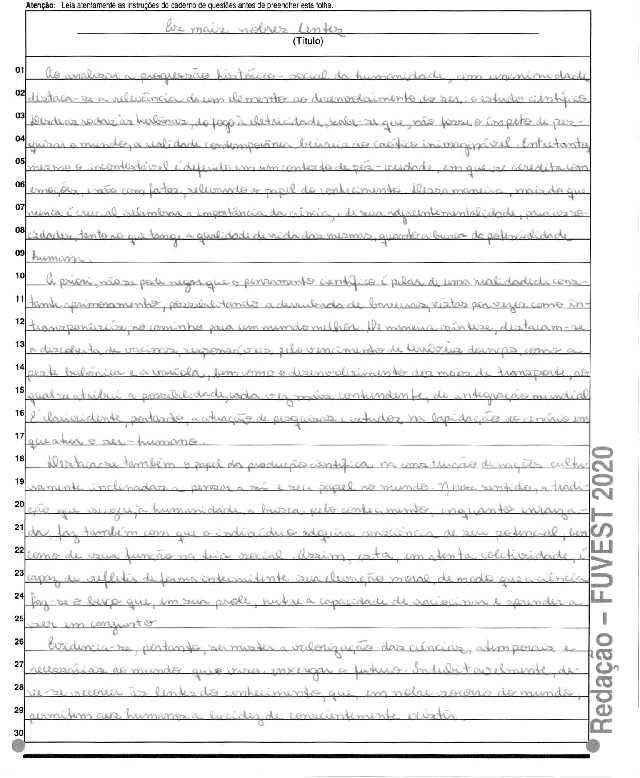 Atenção: Leia atentamente as instruções do caderno de questões antes de preencher esta folha.
mais nobres lentes
(Título)
01 Ao analisar a progressão histórico-social da humanidade, com unanimidade
02 destaca-se a relevância de um elemento ao desenvolvimento do ser: o estudo científico.
03 Desde as rodas às turbinas, do fogo à eletricidade, sabe-se que, não fosse o ímpeto de pes-
04 quisar o mundo, a realidade contemporânea beiraria ao caótico inimaginável. Entretanto,
05 mesmo o incontestável é definido em um contexto de pós-verdade, em que se acredita com
06 emoções, e não com fatos, o papel do conhecimento. Dessa maneira, mais do que
07 nunca é crucial relembrar a importância da ciência, e de sua adjacente mentalidade, para as so-
08 ciedades, tanto no que tange a qualidade de vida das mesmas, quanto a busca da potencialidade
09 humana.
10 A priori, não se pode negar que o pensamento científico é pilar de uma realidade de cons-
11 tante aprimoramento, possibilitando a derrubada de barreiras, vistas por vezes como in-
12 transponíveis, no caminho para um mundo melhor. De maneira síntese, destacam-se
13 a descoberta de vacinas, responsáveis pelo vencimento de terríveis doenças, como a
14 peste bubônica e a varíola, bem como o desenvolvimento dos meios de transporte, ao
15 qual se atribui a possibilidade, cada vez mais contundente, de integração mundial.
16 É clarividente, portanto, a atuação de pesquisas e estudos na lapidação ao cenário em
17 que atua o ser-humano.
18 Destaca-se também o papel da produção científica na construção de nações cultu-
19 ramente inclinadas a pensar a si e seu papel no mundo. Nesse sentido, a tradi-
20 ção que sugeriu à humanidade, a busca pelo conhecimento, enquanto enraiza-
21 da, faz também com que o indivíduo adquira consciência de seu potencial, bem
22 como de sua função na teia social. Assim, esta, em atenta coletividade, é
23 capaz de refletir de forma intermitente sua elevação moral, de modo que a ciência
24 faz-se o berço que, em sua prole, nutre a capacidade de raciocinar e aprender a
25 ser em conjunto.
26 Evidencia-se, portanto, ser mister a valorização das ciências, atemporais e
27 necessárias ao mundo que visa enxergar o futuro. Indubitavelmente, de-
28 ve-se recorrer às lentes do conhecimento, que, em nobre socorro do mundo,
29 permitem aos humanos a lucidez de conscientemente existir.
30
Redação – FUVEST 2020